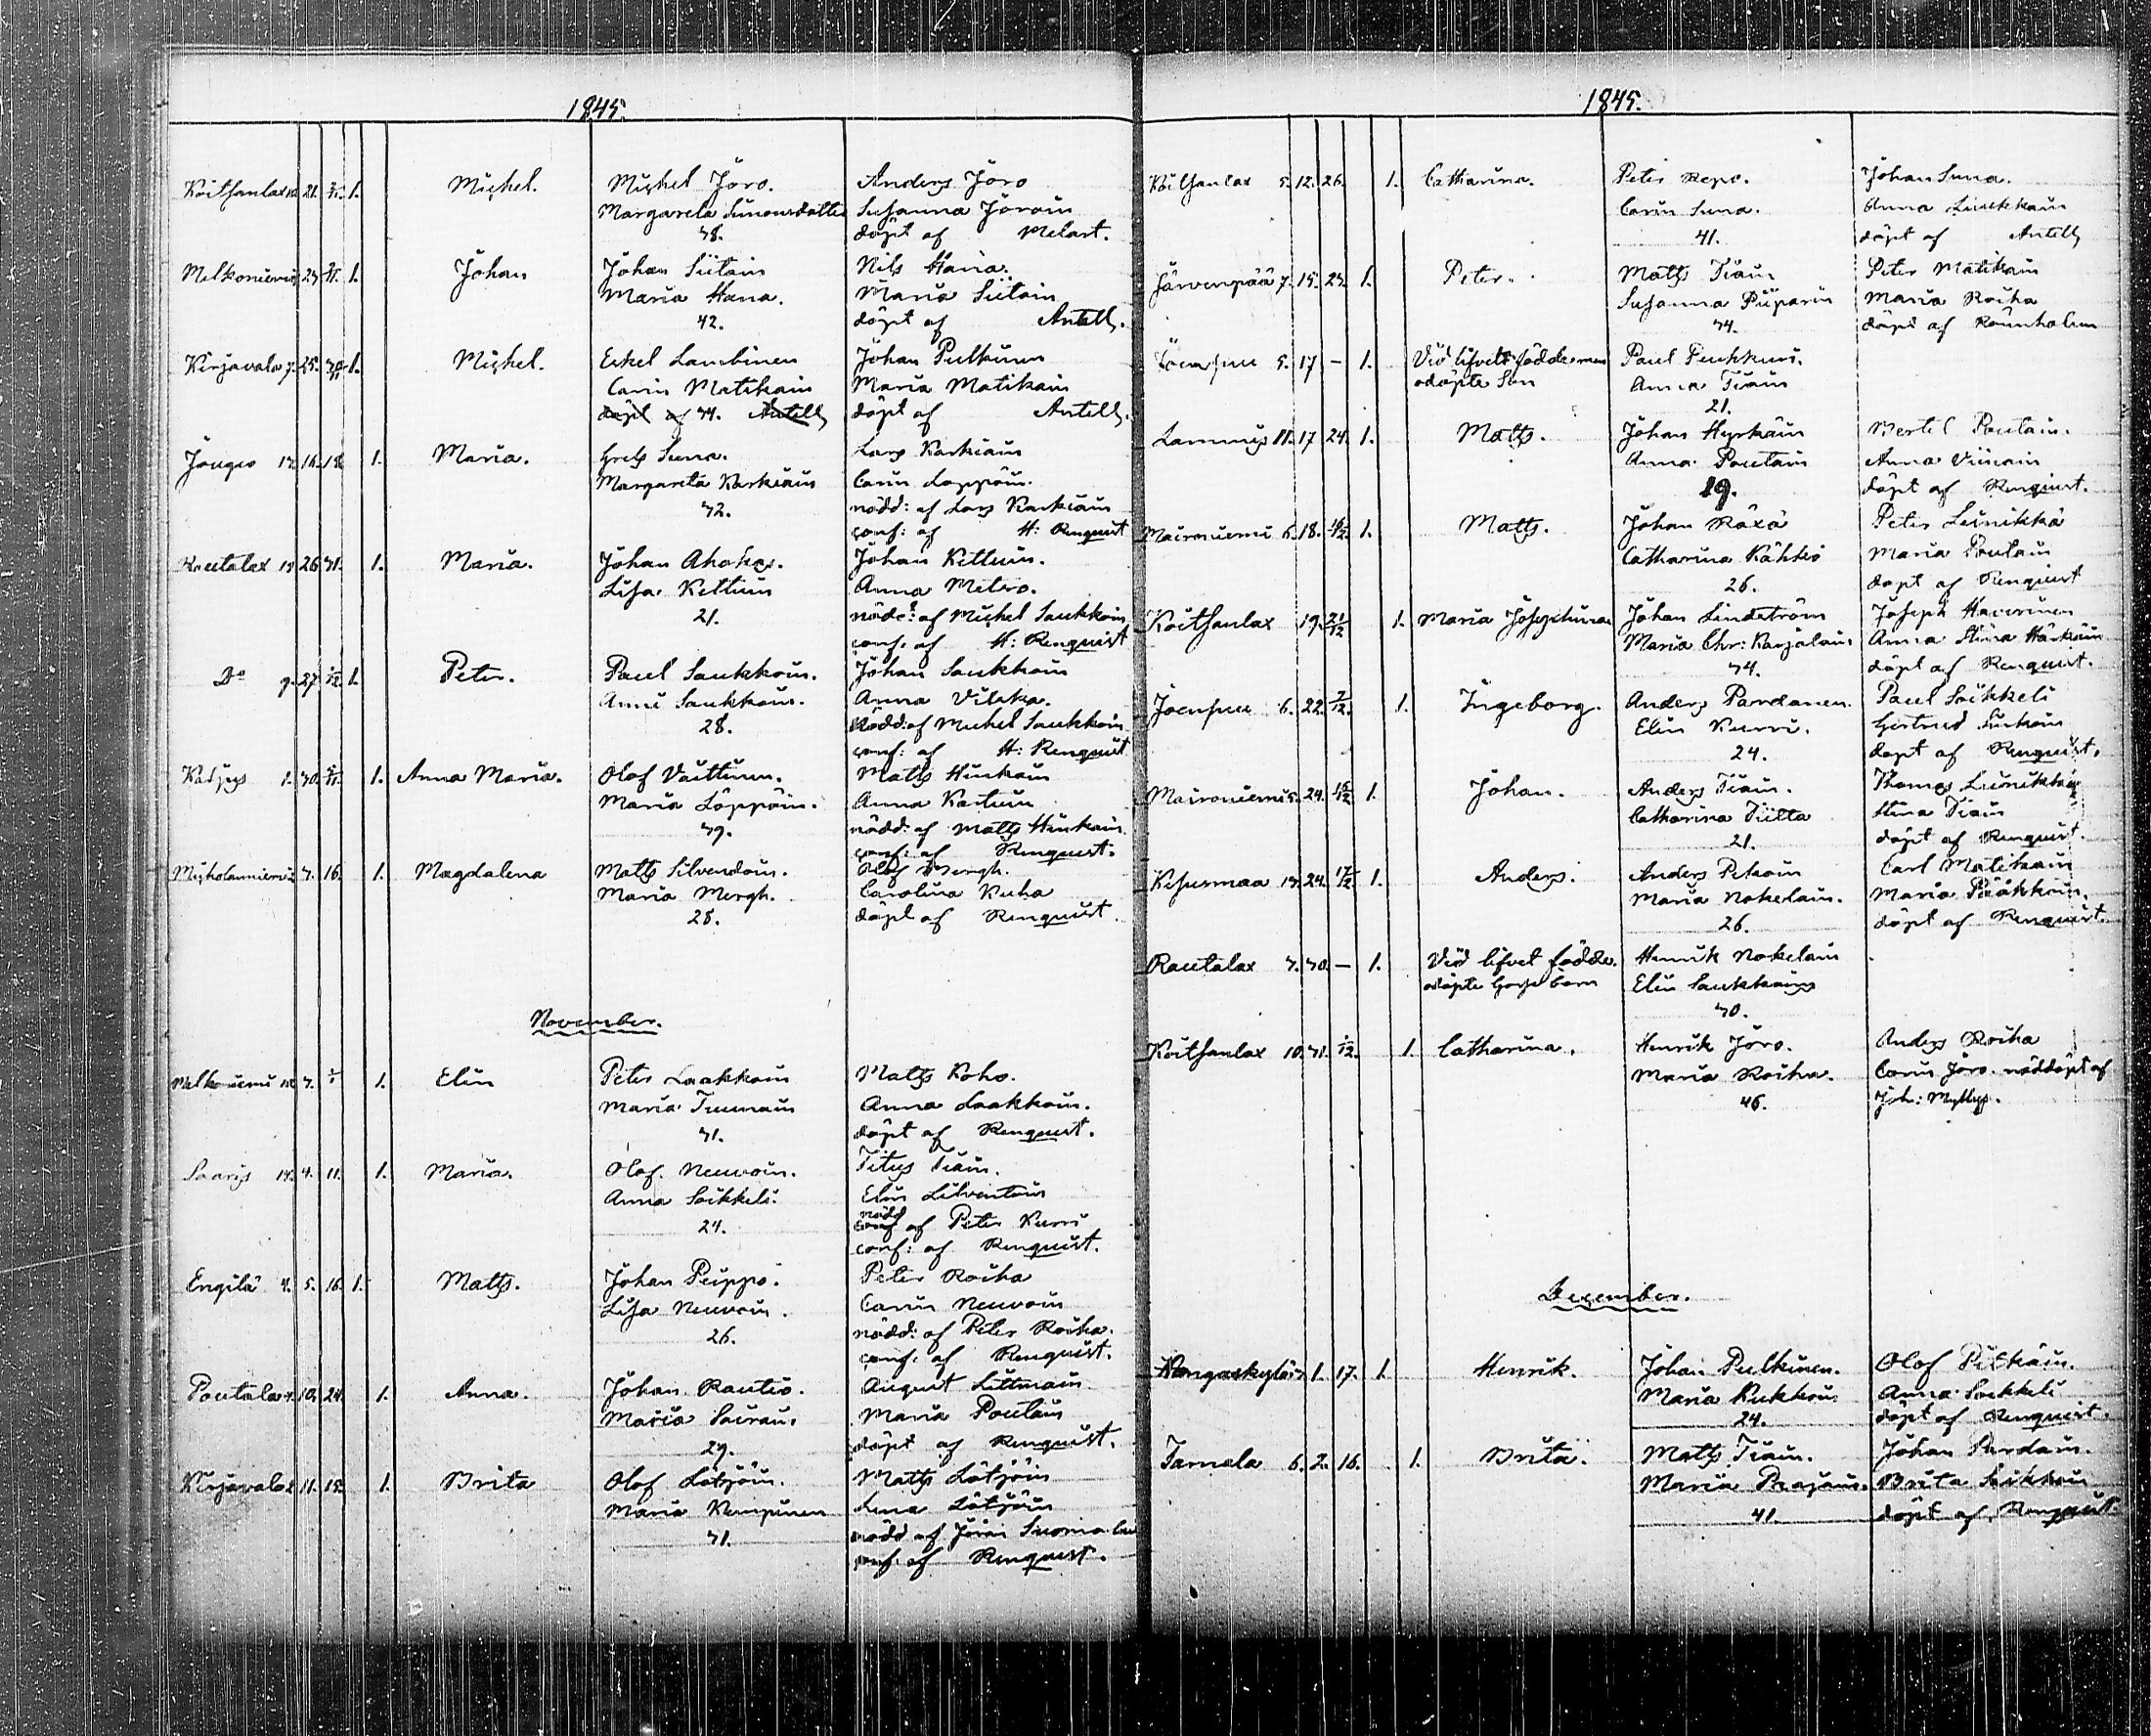 1845.
Koitsanlax 21. 1. Michel. Michel Jöro. Anders Jöro
Margareta Simonsdotter Susanna Jöroin
38. döpt af Melart.
Melkoniemi 23 1. Johan Johan Siitain Nils Hana.
Maria Hana. Maria Siitain
42. döpt af Antell.
Kirjavala 7. 25. 1. Michel. Eskel Lambinen Johan Pulkinen
Carin Matikain Maria Matikain
döpt af 34. Antell döpt af Antell.
Jougio 16. 18. 1. Maria. Grels Suna. Lars Karkiain
Margareta Karkiain Carin Loppöin.
32. nödd: af Lars Karkiain
conf: af H: Renquist
Rautalax 26 31. 1. Maria. Johan Ahokas. Johan Kettuin.
Lisa Kettuin Anna Metero.
21. nödd: af Michel Saukkoin
conf: af H: Renquist
Do 9. 27 1/12. 1. Peter. Paul Saukkoin. Johan Saukkoin
Anni Saukkoin. Anna Vilska.
28. Nödd: af Michel Saukkoin
conf: af H: Renquist
1. 30. 1. Anna Maria. Olof Vaittinen. Matts Hirskain
Maria Löppöin. Anna Kastuin
39. nödd: af Matts Hirskain
conf: af Renquist.
3. 16. 1. Magdalena Matts Silvendoin. Olof Mergh.
Maria Mergh. Carolina Kuha
28. döpt af Renquist.
November.
Melkoniemi 3. 1. Elin Peter Laakkoin Matts Koho.
Maria Tuunain Anna Laakkoin.
31. döpt af Renquist.
Saaris 4. 11. 1. Maria. Olof Neuvoin. Titus Tiain.
Anna Soikkeli. Elin Silventoin
24. nödd af Peter Kurri
conf: af Renquist.
Engilä 4. 5. 16. 1. Matts. Johan Peippo. Peter Roiha
Lisa Neuvoin. Carin Neuvoin
26. nödd: af Peter Roiha.
conf: af Renquist.
Poutala 10. 24. 1. Anna. Johan Rautio. August Littmain
Maria Poutain
29. döpt af Renquist.
Kirjavala 11. 1. Brita Olof Lötjöin. Matts Lötjöin
Maria Kempinen Lena Lötjöin
31. nödd af Jöran
conf: af Renquist.
1845.
Koitsanlax 5. 12. 26. 1. Catharina. Peter Repo. Johan Suna.
Carin Suna. Anna Liukkain
41. döpt af Antell
Järvenpää 7. 15. 23. 1. Peter. Matts Tiain Peter Matikain
Susanna Piiparin Maria Roiha
34. döpt af Rönnholm
Joenpuu 5. 17 — 1. Vid lifvet födde men Paul Puhkuri.
odöpte Son Anna Tiain
21.
Lammis 11. 17 24. 1. Matts. Johan Hyrkäin Bertel Poutain.
Anna Poutain Anna Viinain
19. döpt af Renquist.
Maironiemi 6. 18. 16/12. 1. Matts. Johan Räxä Peter Leinikkä
Catharina Kähkö Maria Poutain
26. döpt af Renquist
Koitsanlax 19. 21/12 1. Maria Josephina Johan Lindström Joseph Haverinen
Maria Chr: Karjalain Anna Stina Härkäin
34. döpt af Renquist.
Joenpuu 6. 22. 7/12. 1. Ingeborg. Anders Pardanen. Paul Soikkeli
Elin Kurri. Gertrud
24. döpt af Renquist.
Maironiemi 5. 24. 1. Johan. Anders Tiain. Thomas Leinikkä
Catharina Tiitta Stina Tiain
21. döpt af Renquist.
Kesusmaa 24. 17/12 1. Anders. Anders Pekoin Carl Matikain
Maria Nokelain. Maria Pääkkoin.
26. döpt af Renquist.
Rautalax 3. 30. — 1. Vid lifvet födde. Henrik Nokelain
odöpte Gosse barn Elin Saukkoin
30.
Koitsanlax 10. 31. 1/12. 1. Catharina. Henrik Jöro. Anders Roiha
Maria Roiha. Carin Jöro. nöddöpt af
46. Joh: Myllys.
December.
Kangaskylä 1. 17. 1. Henrik. Johan Pulkinen. Olof Pitkäin.
Maria Kukkoin Anna Soikkeli
24. döpt af Renquist.
Tarnala 6. 2. 16. 1. Brita. Matts Tiain. Johan Pardain.
Maria Brita Soikkoin
41. döpt af Renquist.